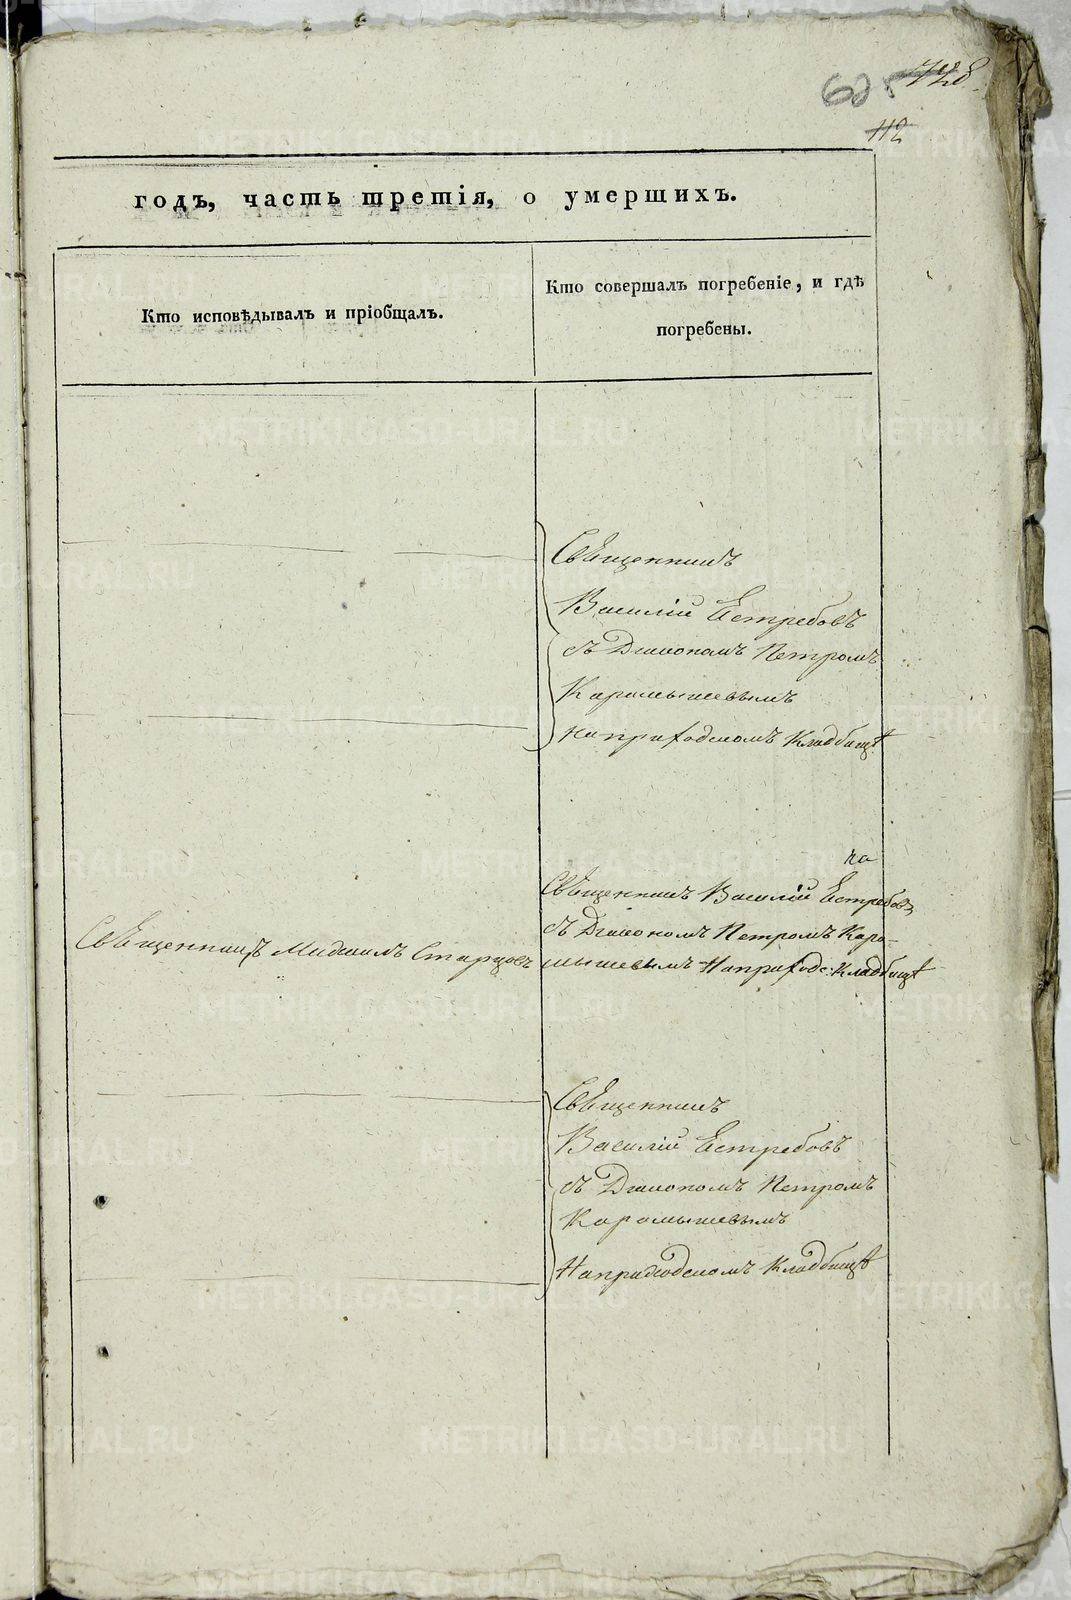 62
728
112
годъ, часть третія, о умершихъ.
Кто исповѣдывалъ и пріобщалъ.
Кто совершалъ погребеніе, и гдѣ
погребены.
Священникъ
Василій Ястребовъ
съ Диакономъ Петромъ
Карамышевымъ
на приходскомъ Кладбищѣ
на
Священникъ Василій Ястребовъ
съ Диакономъ Петромъ Кара-
Священникъ Михаилъ Старцовъ
мышевымъ На приходс: Кладбищѣ
Священникъ
Василій Ястребовъ
съ Диакономъ Петромъ
Карамышевымъ
На приходскомъ Кладбищѣ
METRIKI.GASO-URAL.RU